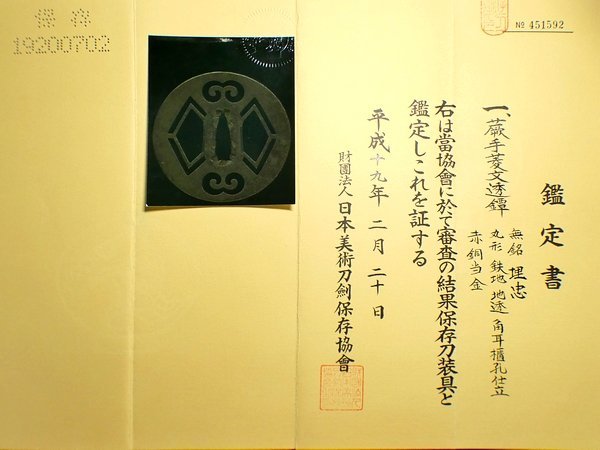 № 451592
鑑定書
一、蕨手菱文透鐔
無銘 埋忠
丸形 鉄地 地透 角耳 櫃孔仕立
赤銅当金
右は當協會に於て審査の結果保存刀装具と
鑑定しこれを証する
平成十九年二月二十日
財團法人 日本美術刀劍保存協會
保存
19200702